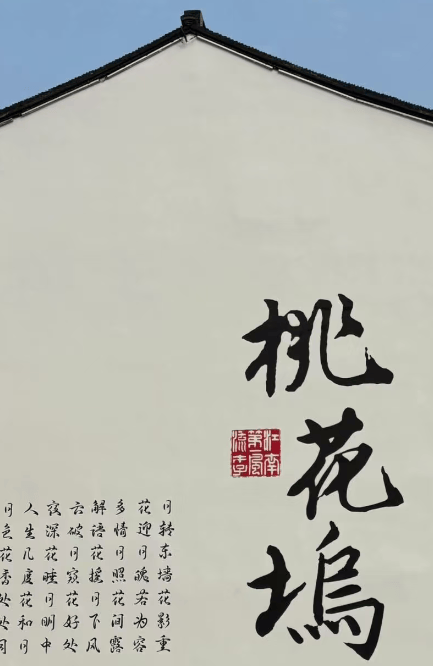 桃花坞
江南
第一风
流才子
月转东墙花影重
花迎月魄若为容
多情月照花间露
解语花摇月下风
云破月窥花好处
夜深花睡月明中
人生几度花和月
月色花香处处同